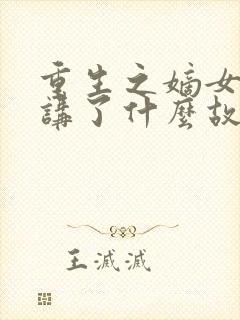 重生之嫡女
講了什麼故
王滅滅